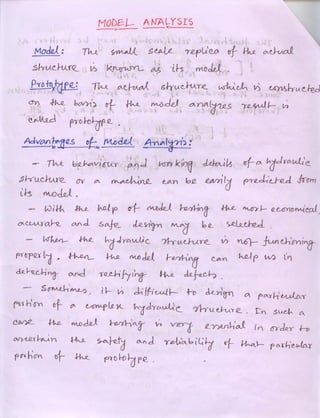 MODEL ANALYSIS
Model: The small scale replica of the actual
structure is known as its model.
Prototype: The actual structure which is constructed
on the basis of the model analyses result is
called prototype.
Advantages of Model Analysis:
- The behaviour and working details of a hydraulic
structure or a machine can be easily predicted from
its model.
- With the help of model testing the most economical,
accurate and safe design may be selected.
- When the hydraulic structure is not functioning
properly, then the model testing can help us in
detecting and rectifying the defects.
- Sometimes, it is difficult to design a particular
portion of a complex hydraulic structure. In such a
case the model testing is very essential in order to
ascertain the safety and reliability of that particular
portion of the prototype.